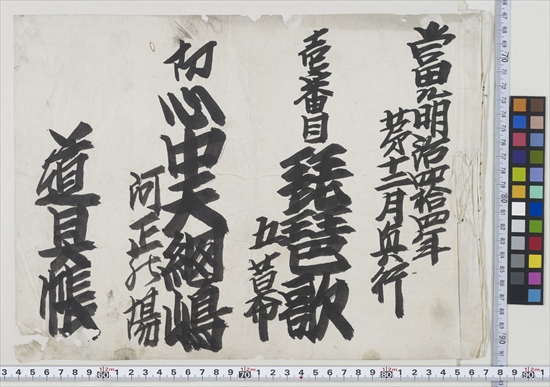 當ル明治四拾四年
第十二月興行
壱番目 琵琶歌
五幕
切 心中天網嶋
河正の場
道具帳